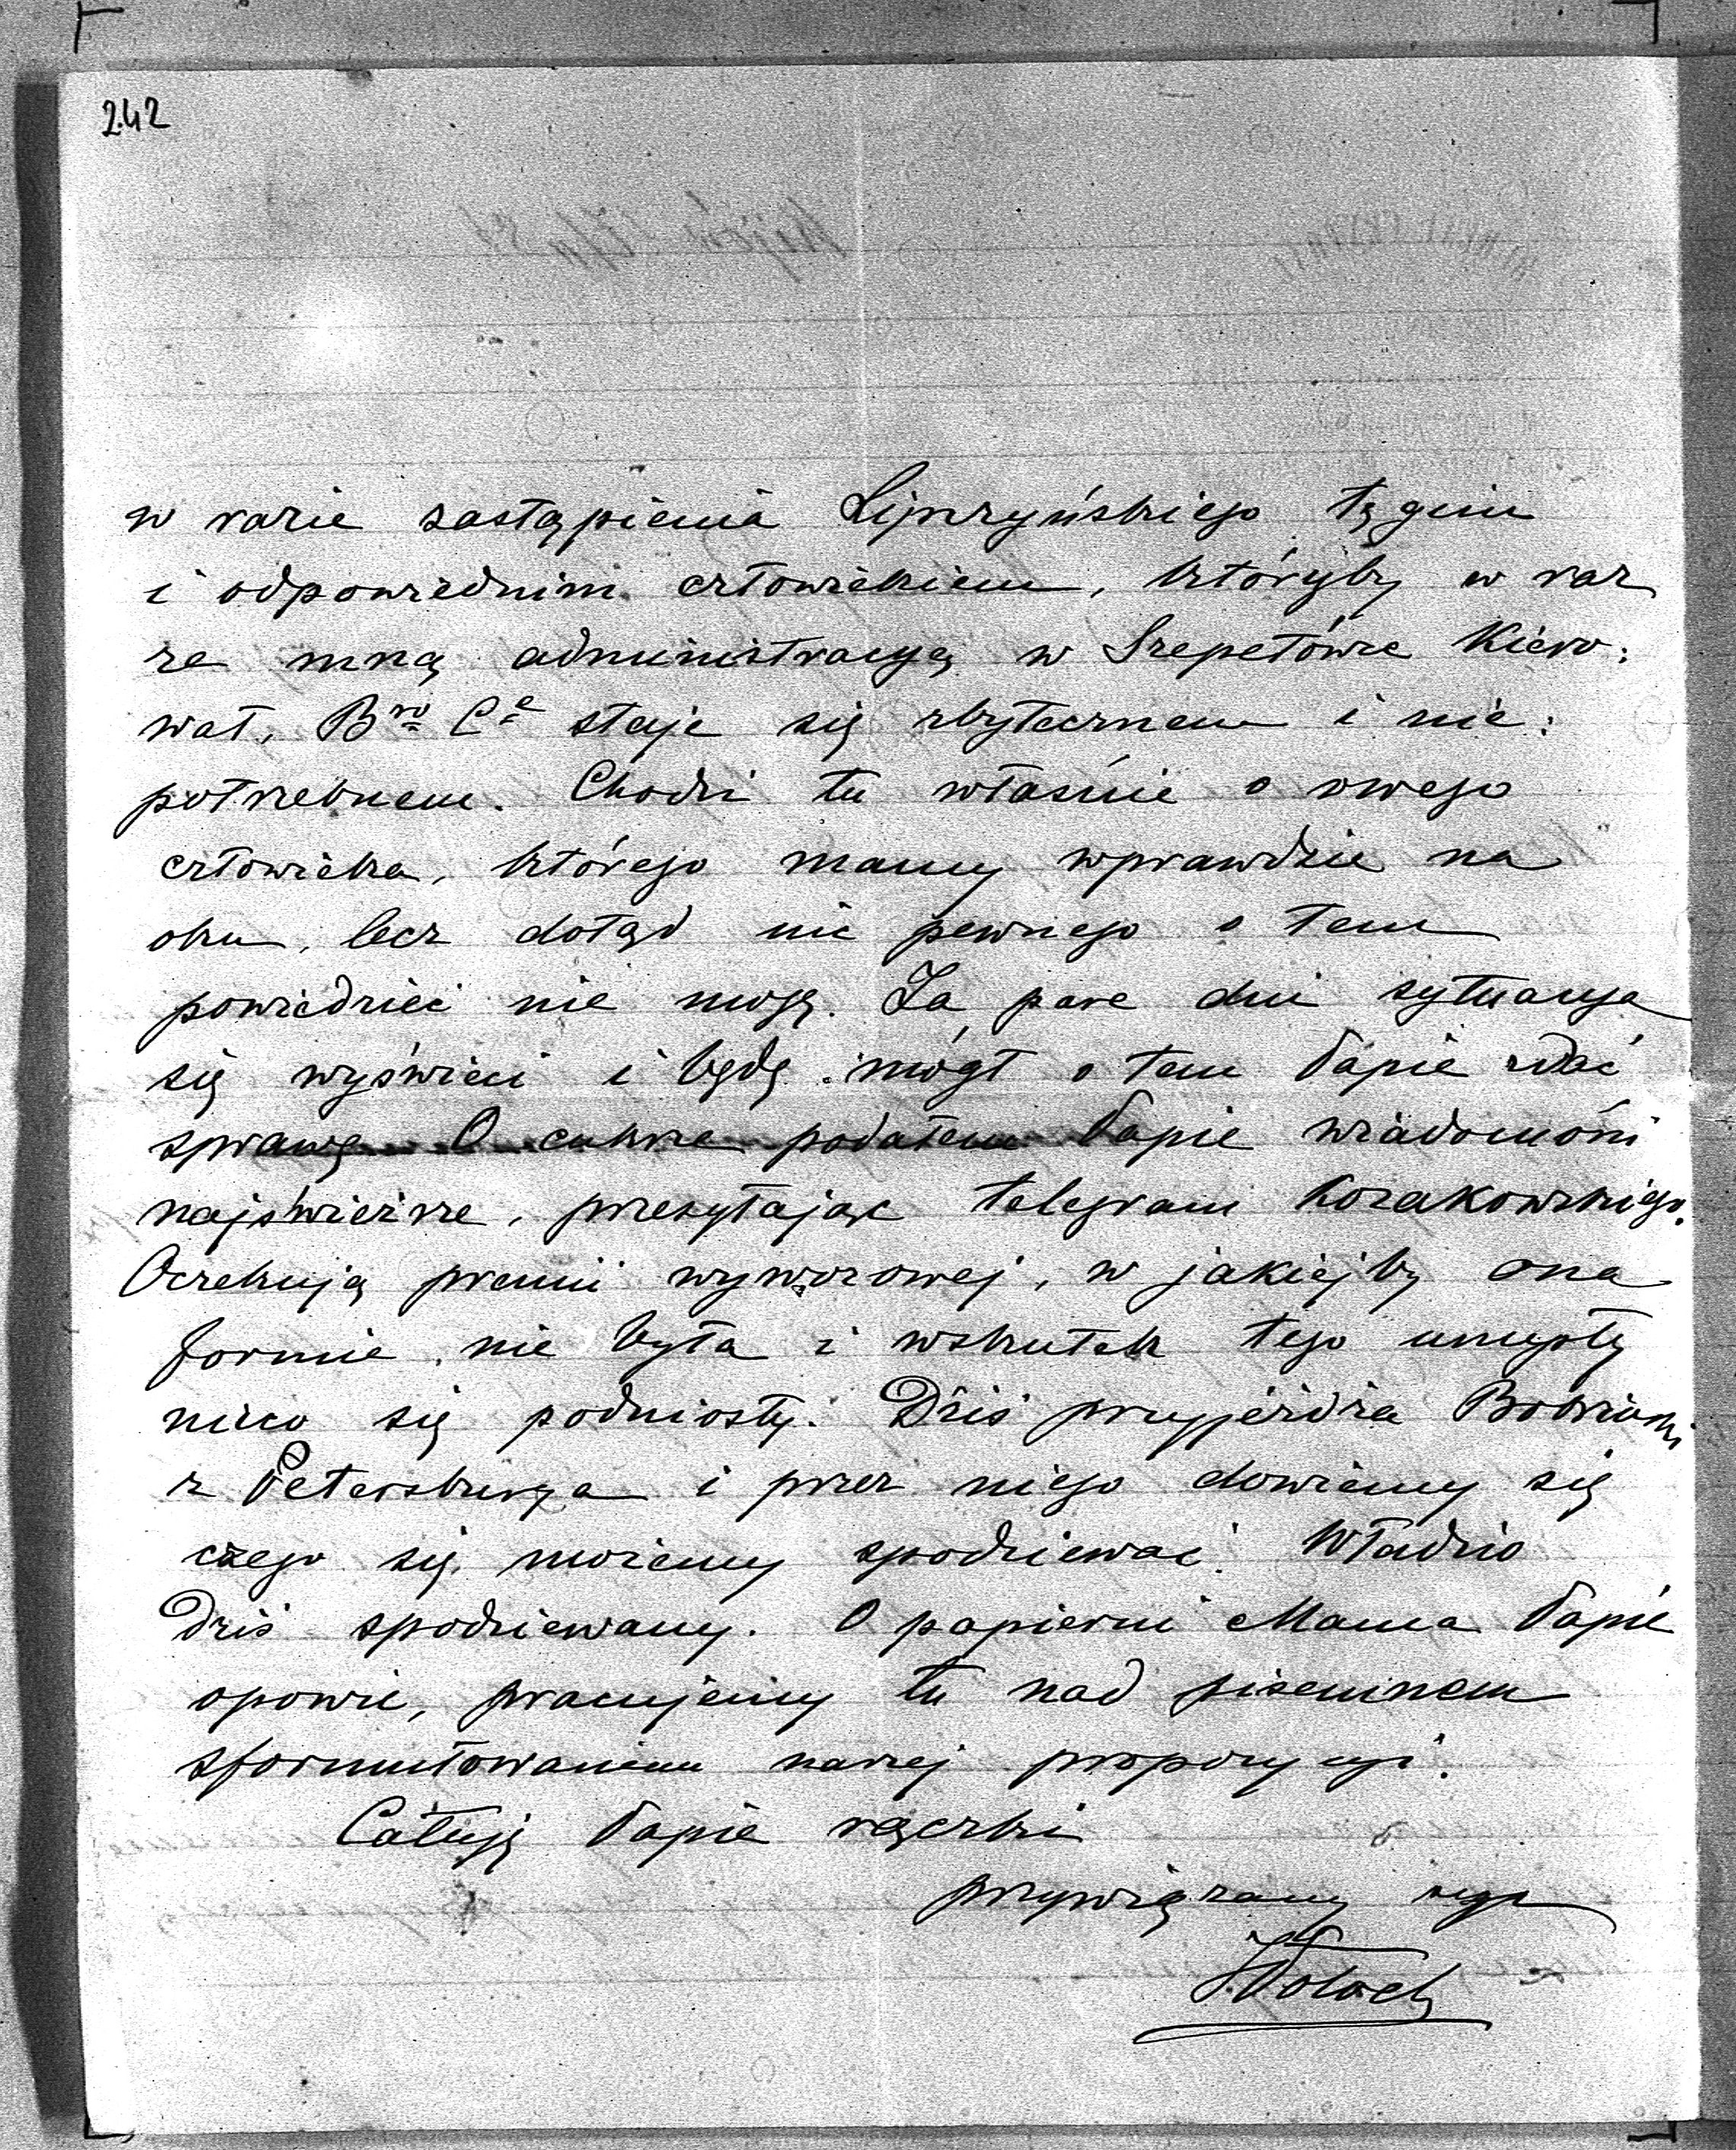 242
w razie zastąpienia Lipczyńskiego tęgim
i odpowiednim człowiekiem, któryby w raz
ze mną administracyą w Szepetówce kiero:
wał, Bro Ce staje się zbytecznem i nie:
potrzebnem. Chodzi tu właśnie o owego
człowieka, którego mamy wprawdzie na
oku, lecz dotąd nic pewnego o tem
powiedzieć nie mogę. Za parę dni sytuacya
się wyświeci i będę mógł o tem Papie zdać
sprawę. O cukrze podałem Papie wiadomości
najświeższe, przesyłając telegram Kozakowskiego.
Oczekują premii wywozowej, w jakiejby ona
formie nie była i wskutek tego umysły
nieco się podniosły. Dziś przyjeżdża Bobrinski
z Petersburga i przez niego dowiemy się
czego się możemy spodziewać. Władzio
dziś spodziewany. O papierni Mama Papie
opowie, pracujemy tu nad pisemnem
sformułowaniem naszej propozycyi.
Całuję Papie rączki
przywiązany syn
JPotocki